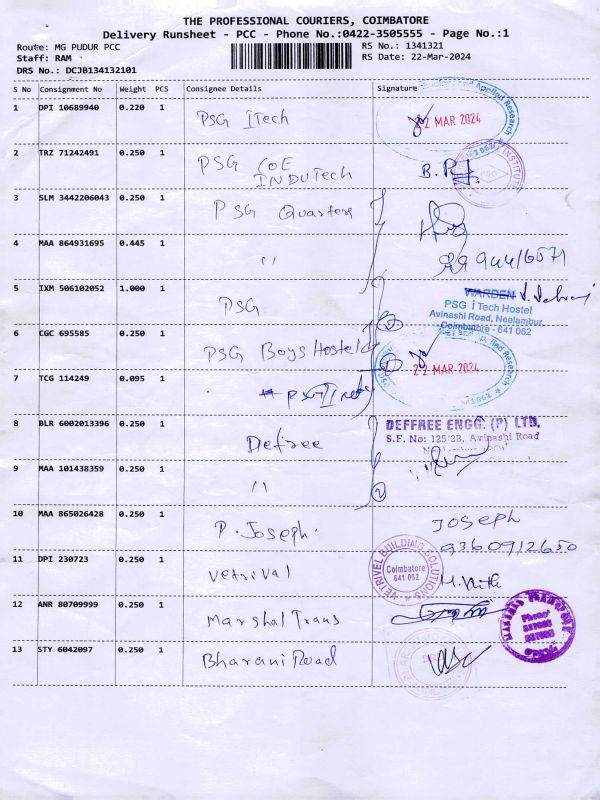 THE PROFESSIONAL COURIERS, COIMBATORE
Delivery Runsheet - PCC - Phone No.:0422-3505555 - Page No.:1
Route: MG PUDUR PCC
Staff: RAM
DRS No.: DCJB134132101
RS No.: 1341321
RS Date: 22-Mar-2024
S No Consignment No Weight PCS Consignee Details Signature
1 DPI 10689940 0.220 1 PSG iTech
Applied Research
22 MAR 2024
2 TRZ 71242491 0.250 1 PSG COE
INDUTech
INSTITUTE
3 SLM 3442206043 0.250 1 PSG Quarters
4 MAA 864931695 0.445 1 〃
5 IXM 506102052 1.000 1 PSG
WARDEN
PSG iTech Hostel
Avinashi Road, Neelambur,
Coimbatore - 641 062
6 CGC 695585 0.250 1 PSG Boys Hostel
Applied Research
22 MAR 2024
7 TCG 114249 0.095 1 PSG
8 BLR 6002013396 0.250 1 Defree
DEFFREE ENGG. (P) LTD.
S.F. No: 125/2B, Avinashi Road
9 MAA 101438359 0.250 1 〃
2
10 MAA 865026428 0.250 1 P. Joseph.
JOSEPH
9360912650
11 DPI 230723 0.250 1 Vetrival
VETRIVEL BUILDING SOLUTIONS
Coimbatore
641 062
12 ANR 80709999 0.250 1 Marshal Trans
13 STY 6042097 0.250 1 Bharani Road